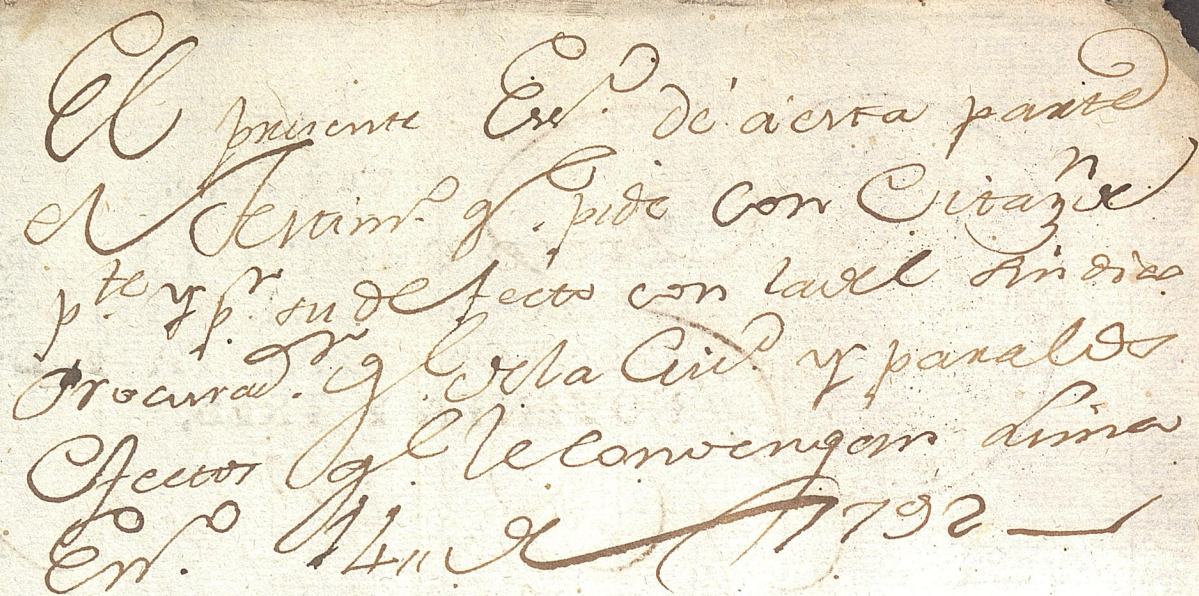 El presente Essno. dé á esta parte
el Testimo. qe. pide con Citazn. de
pte. y pr. su defecto con la del Sindico
Procurador. gl. de esta Ciud. y para los
Efectos qe. le convengan Lima
En.o 14 de 1792